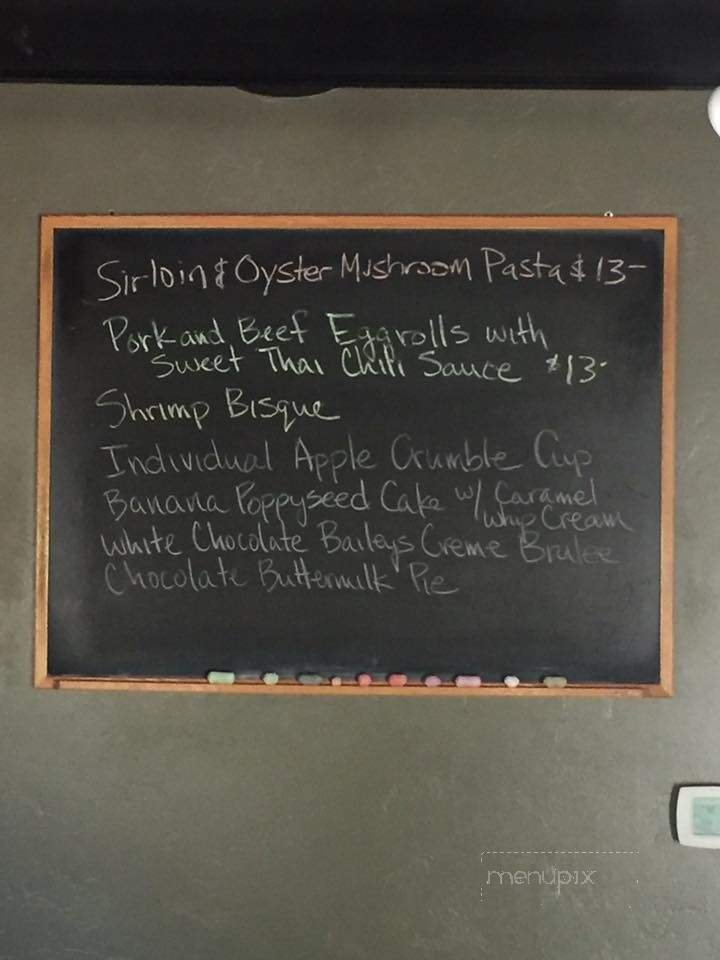 Sirloin & Oyster Mushroom Pasta $13-
Pork and Beef Eggrolls with
Sweet Thai Chili Sauce $13-
Shrimp Bisque
Individual Apple Crumble Cup
Banana Poppyseed Cake w/ Caramel
whip Cream
White Chocolate Baileys Creme Brulee
Chocolate Buttermilk Pie
menupix